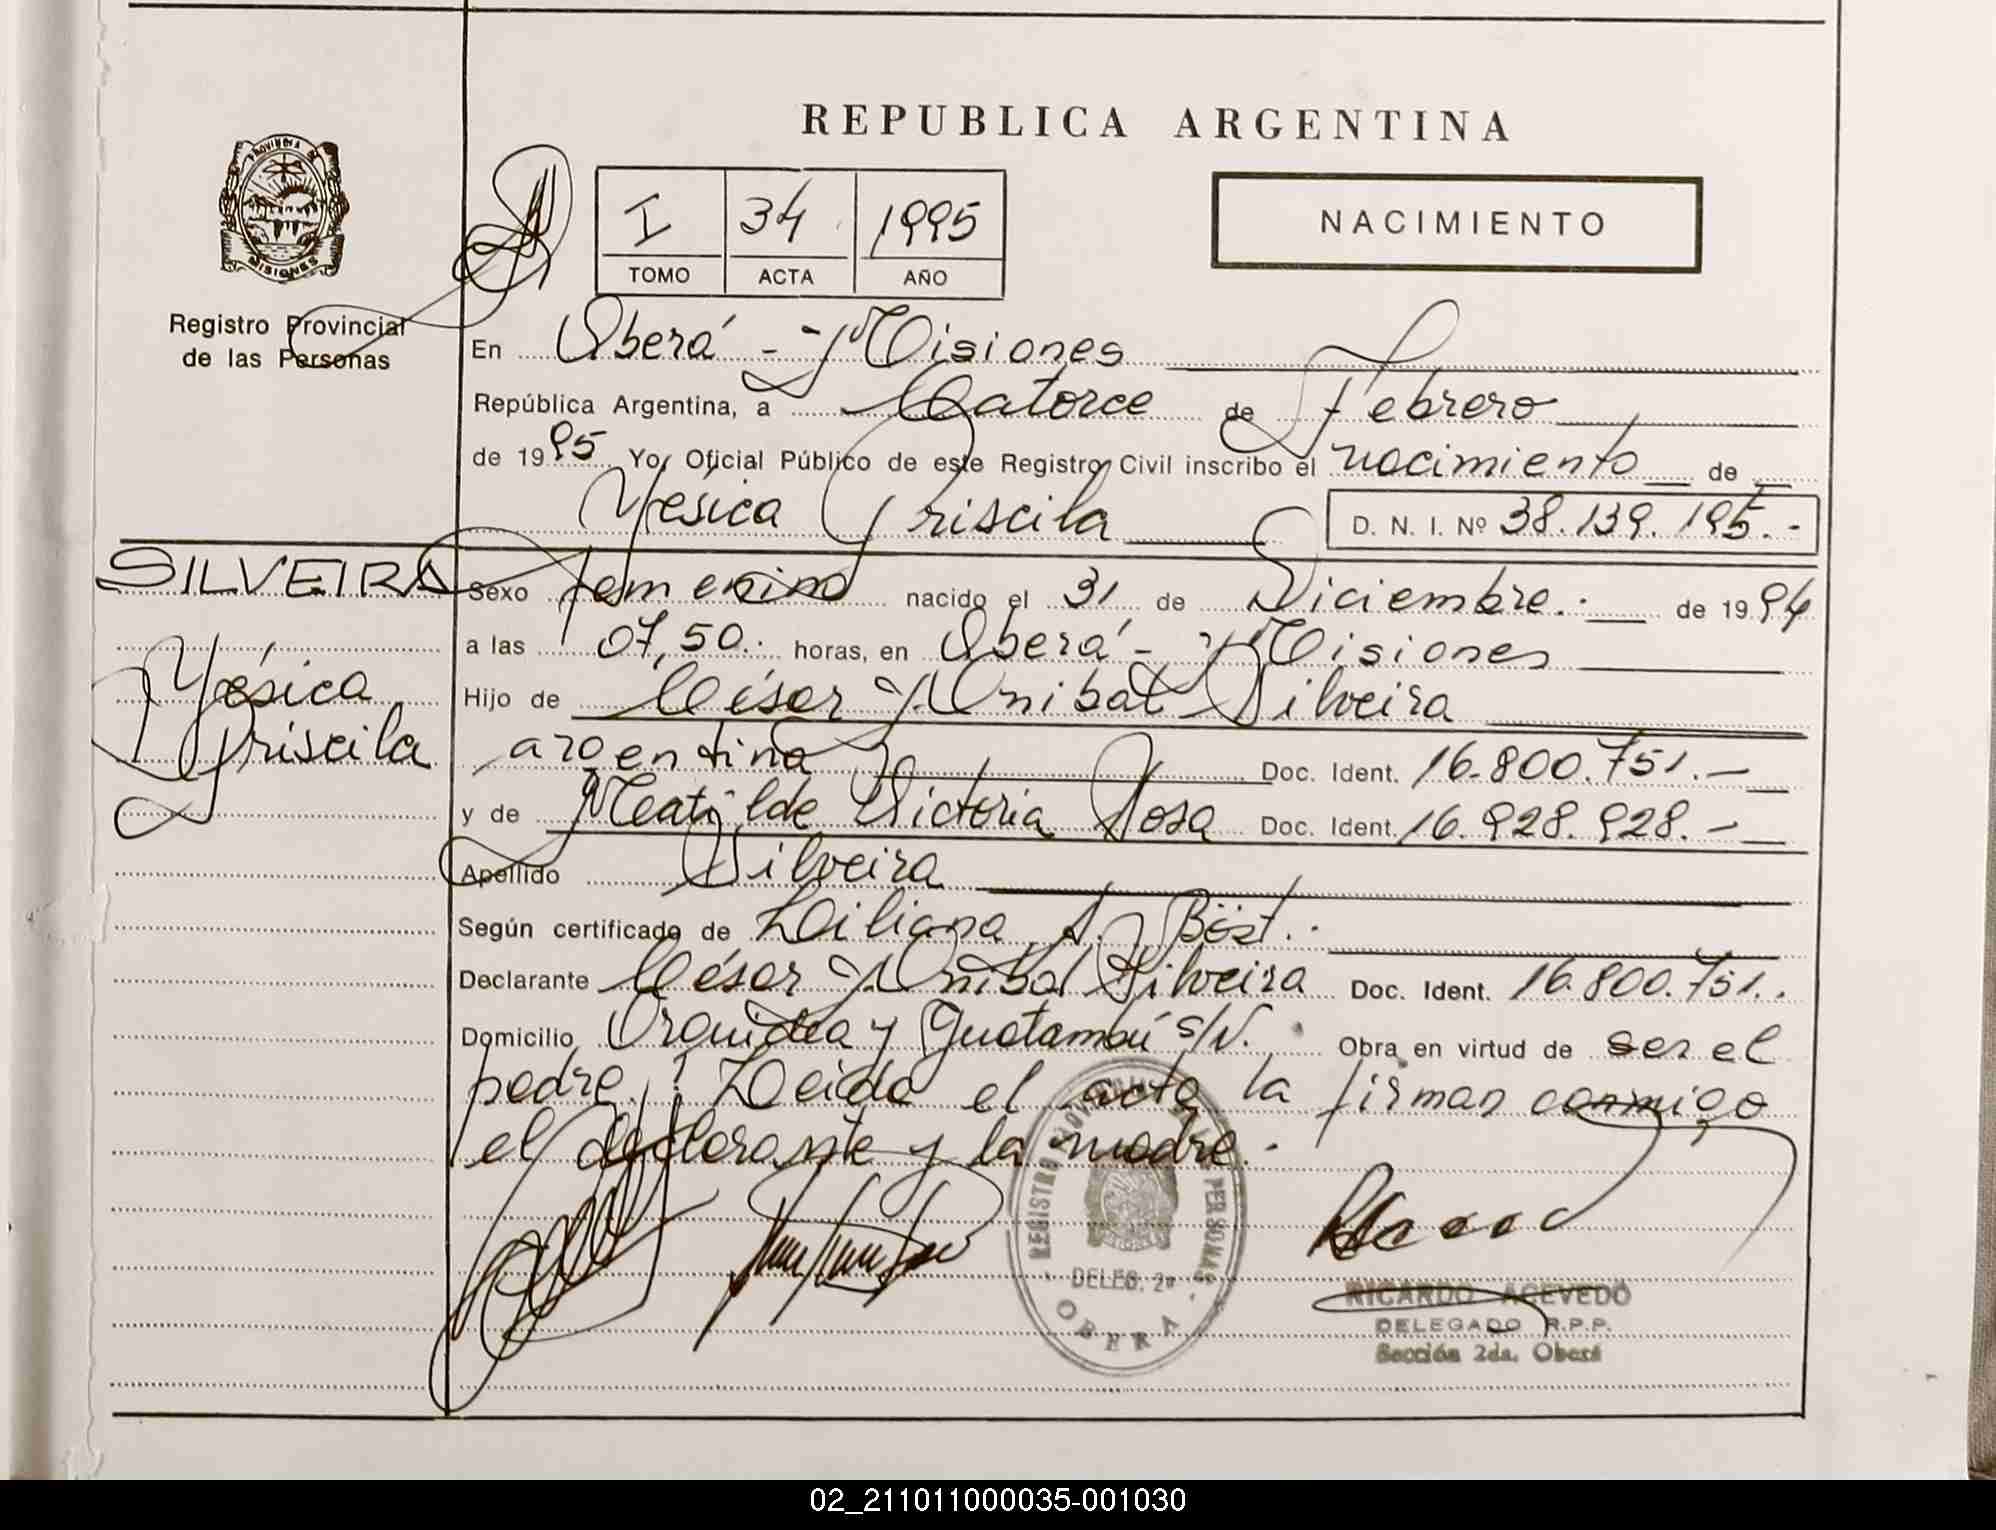 REPUBLICA ARGENTINA
PROVINCIA DE
MISIONES
Registro Provincial
de las Personas
I 34 1995
TOMO ACTA AÑO
NACIMIENTO
En Oberá - Misiones
República Argentina, a Catorce de Febrero
de 1995 Yo, Oficial Público de este Registro Civil inscribo el nacimiento de
Yésica Priscila D. N. I. Nº 38.139.195.-
SILVEIRA
Yésica
Priscila
Sexo femenino nacido el 31 de Diciembre. de 1994
a las 07,50. horas, en Oberá - Misiones
Hijo de César Anibal Silveira
argentina Doc. Ident. 16.800.751.-
y de Matilde Victoria Sosa Doc. Ident. 16.928.928.-
Apellido Silveira
Según certificado de Liliana A. Böst.
Declarante César Anibal Silveira Doc. Ident. 16.800.751.
Domicilio Orquidea y s/N. Obra en virtud de ser el
padre. Leida el acta la firman conmigo
el declarante y la madre.-
REGISTRO PROVINCIAL DE LAS PERSONAS
DELEG. 2ª
OBERA
RICARDO ACEVEDO
DELEGADO R.P.P.
Sección 2da. Oberá
02_211011000035-001030